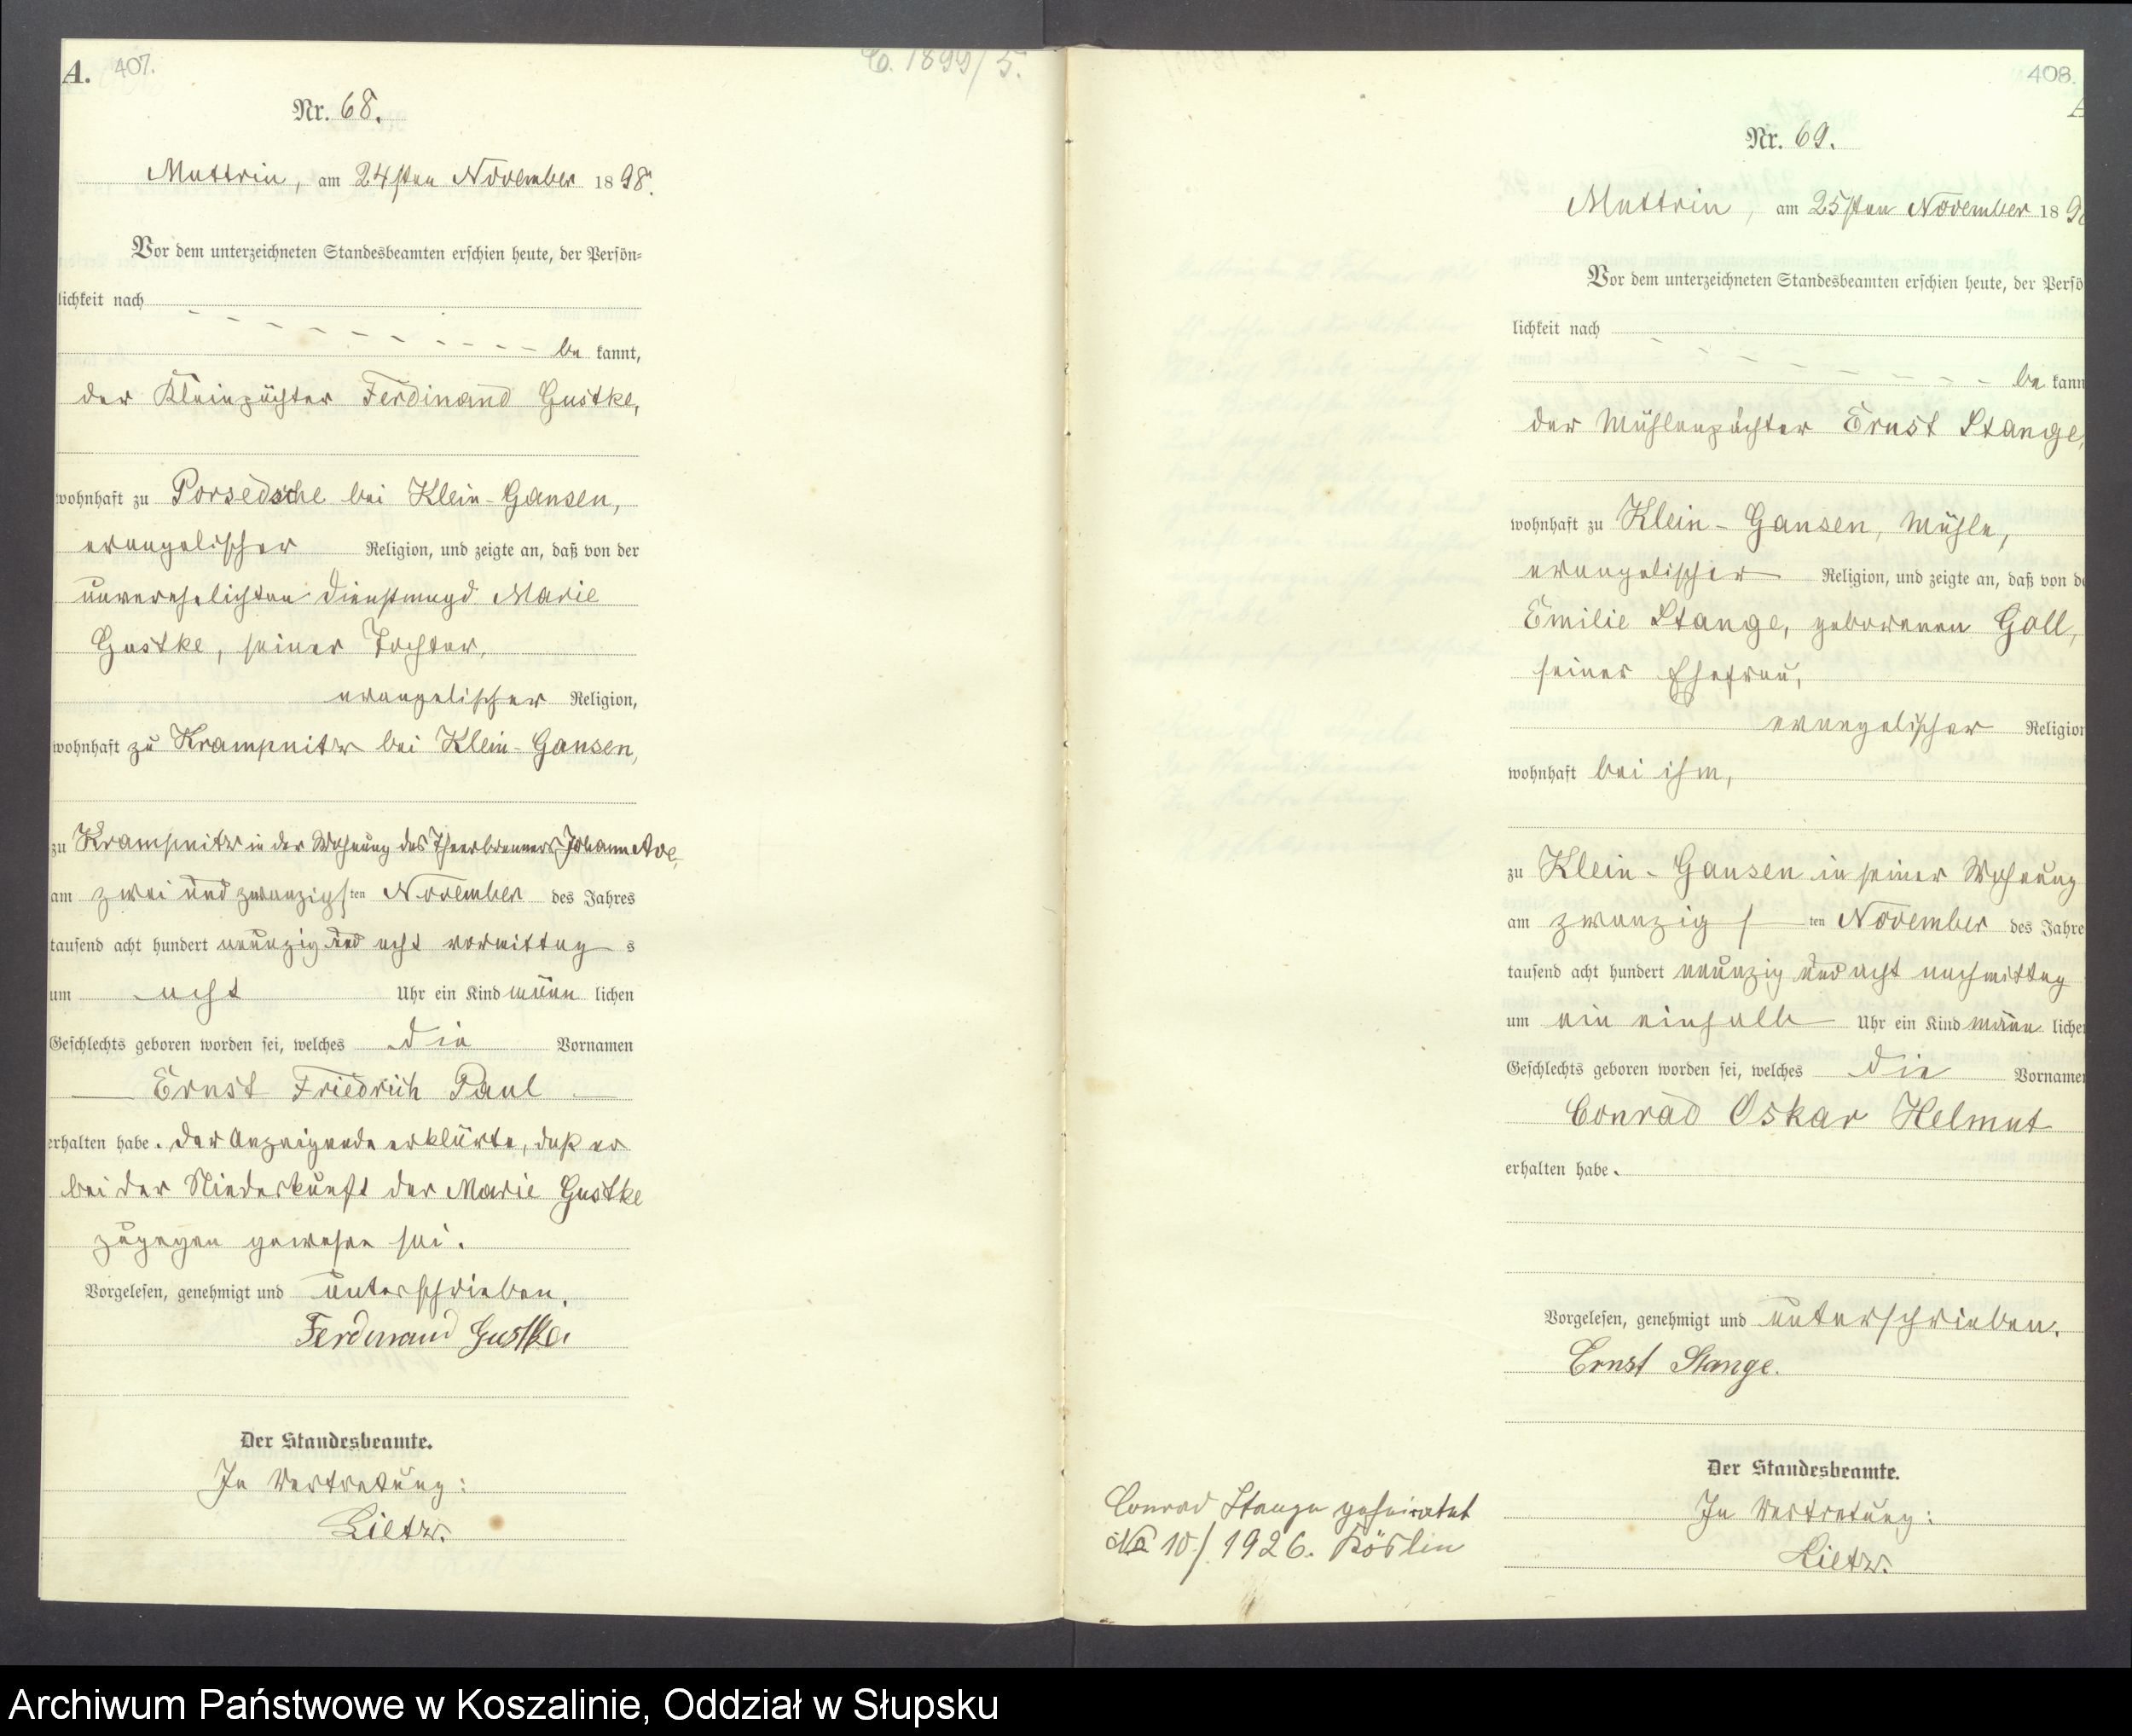 A. 407.
C. 1899/5.
Nr. 68.
Muttrin, am 24sten November 1898.
Vor dem unterzeichneten Standesbeamten erschien heute, der Persön-
lichkeit nach
be kannt,
der Kleinpächter Ferdinand Gustke,
wohnhaft zu Porsedsche bei Klein-Gansen,
evangelischer Religion, und zeigte an, daß von der
unverehelichten Dienstmagd Marie
Gustke, seiner Tochter,
evangelischer Religion,
wohnhaft zu Krampnitz bei Klein-Gansen,
zu Krampnitz in der Wohnung des Theerbrenners Johann
am zwei und zwanzigsten November des Jahres
tausend acht hundert neunzig und acht vormittag s
um acht Uhr ein Kind männ lichen
Geschlechts geboren worden sei, welches die Vornamen
Ernst Friedrich Paul
erhalten habe. Der Anzeigende erklärte, daß er
bei der Niederkunft der Marie Gustke
zugegen gewesen sei.
Vorgelesen, genehmigt und unterschrieben.
Ferdinand Gustke
Der Standesbeamte.
In Vertretung:
Lietz.
408.
Nr. 69.
Muttrin, am 25sten November 189
Vor dem unterzeichneten Standesbeamten erschien heute, der Persö
lichkeit nach
be kann
der Mühlenpächter Ernst Stange,
wohnhaft zu Klein-Gansen, Mühle,
evangelischer Religion, und zeigte an, daß von de
Emilie Stange, geborenen Goll,
seiner Ehefrau,
evangelischer Religion
wohnhaft bei ihm,
zu Klein-Gansen in seiner Wohnung
am zwanzigsten November des Jahre
tausend acht hundert neunzig und acht nachmittag
um ein einhalb Uhr ein Kind männ liche
Geschlechts geboren worden sei, welches die Vorname
Conrad Oskar Helmut
erhalten habe.
Vorgelesen, genehmigt und unterschrieben.
Ernst Stange.
Der Standesbeamte.
In Vertretung:
Lietz.
Conrad Stange geheiratet
No 10/1926. Köslin
Archiwum Państwowe w Koszalinie, Oddział w Słupsku